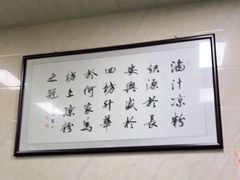 滷汁凉粉
源於長
安興盛於
回坊升華
於何家為
坊上凉粉
之冠